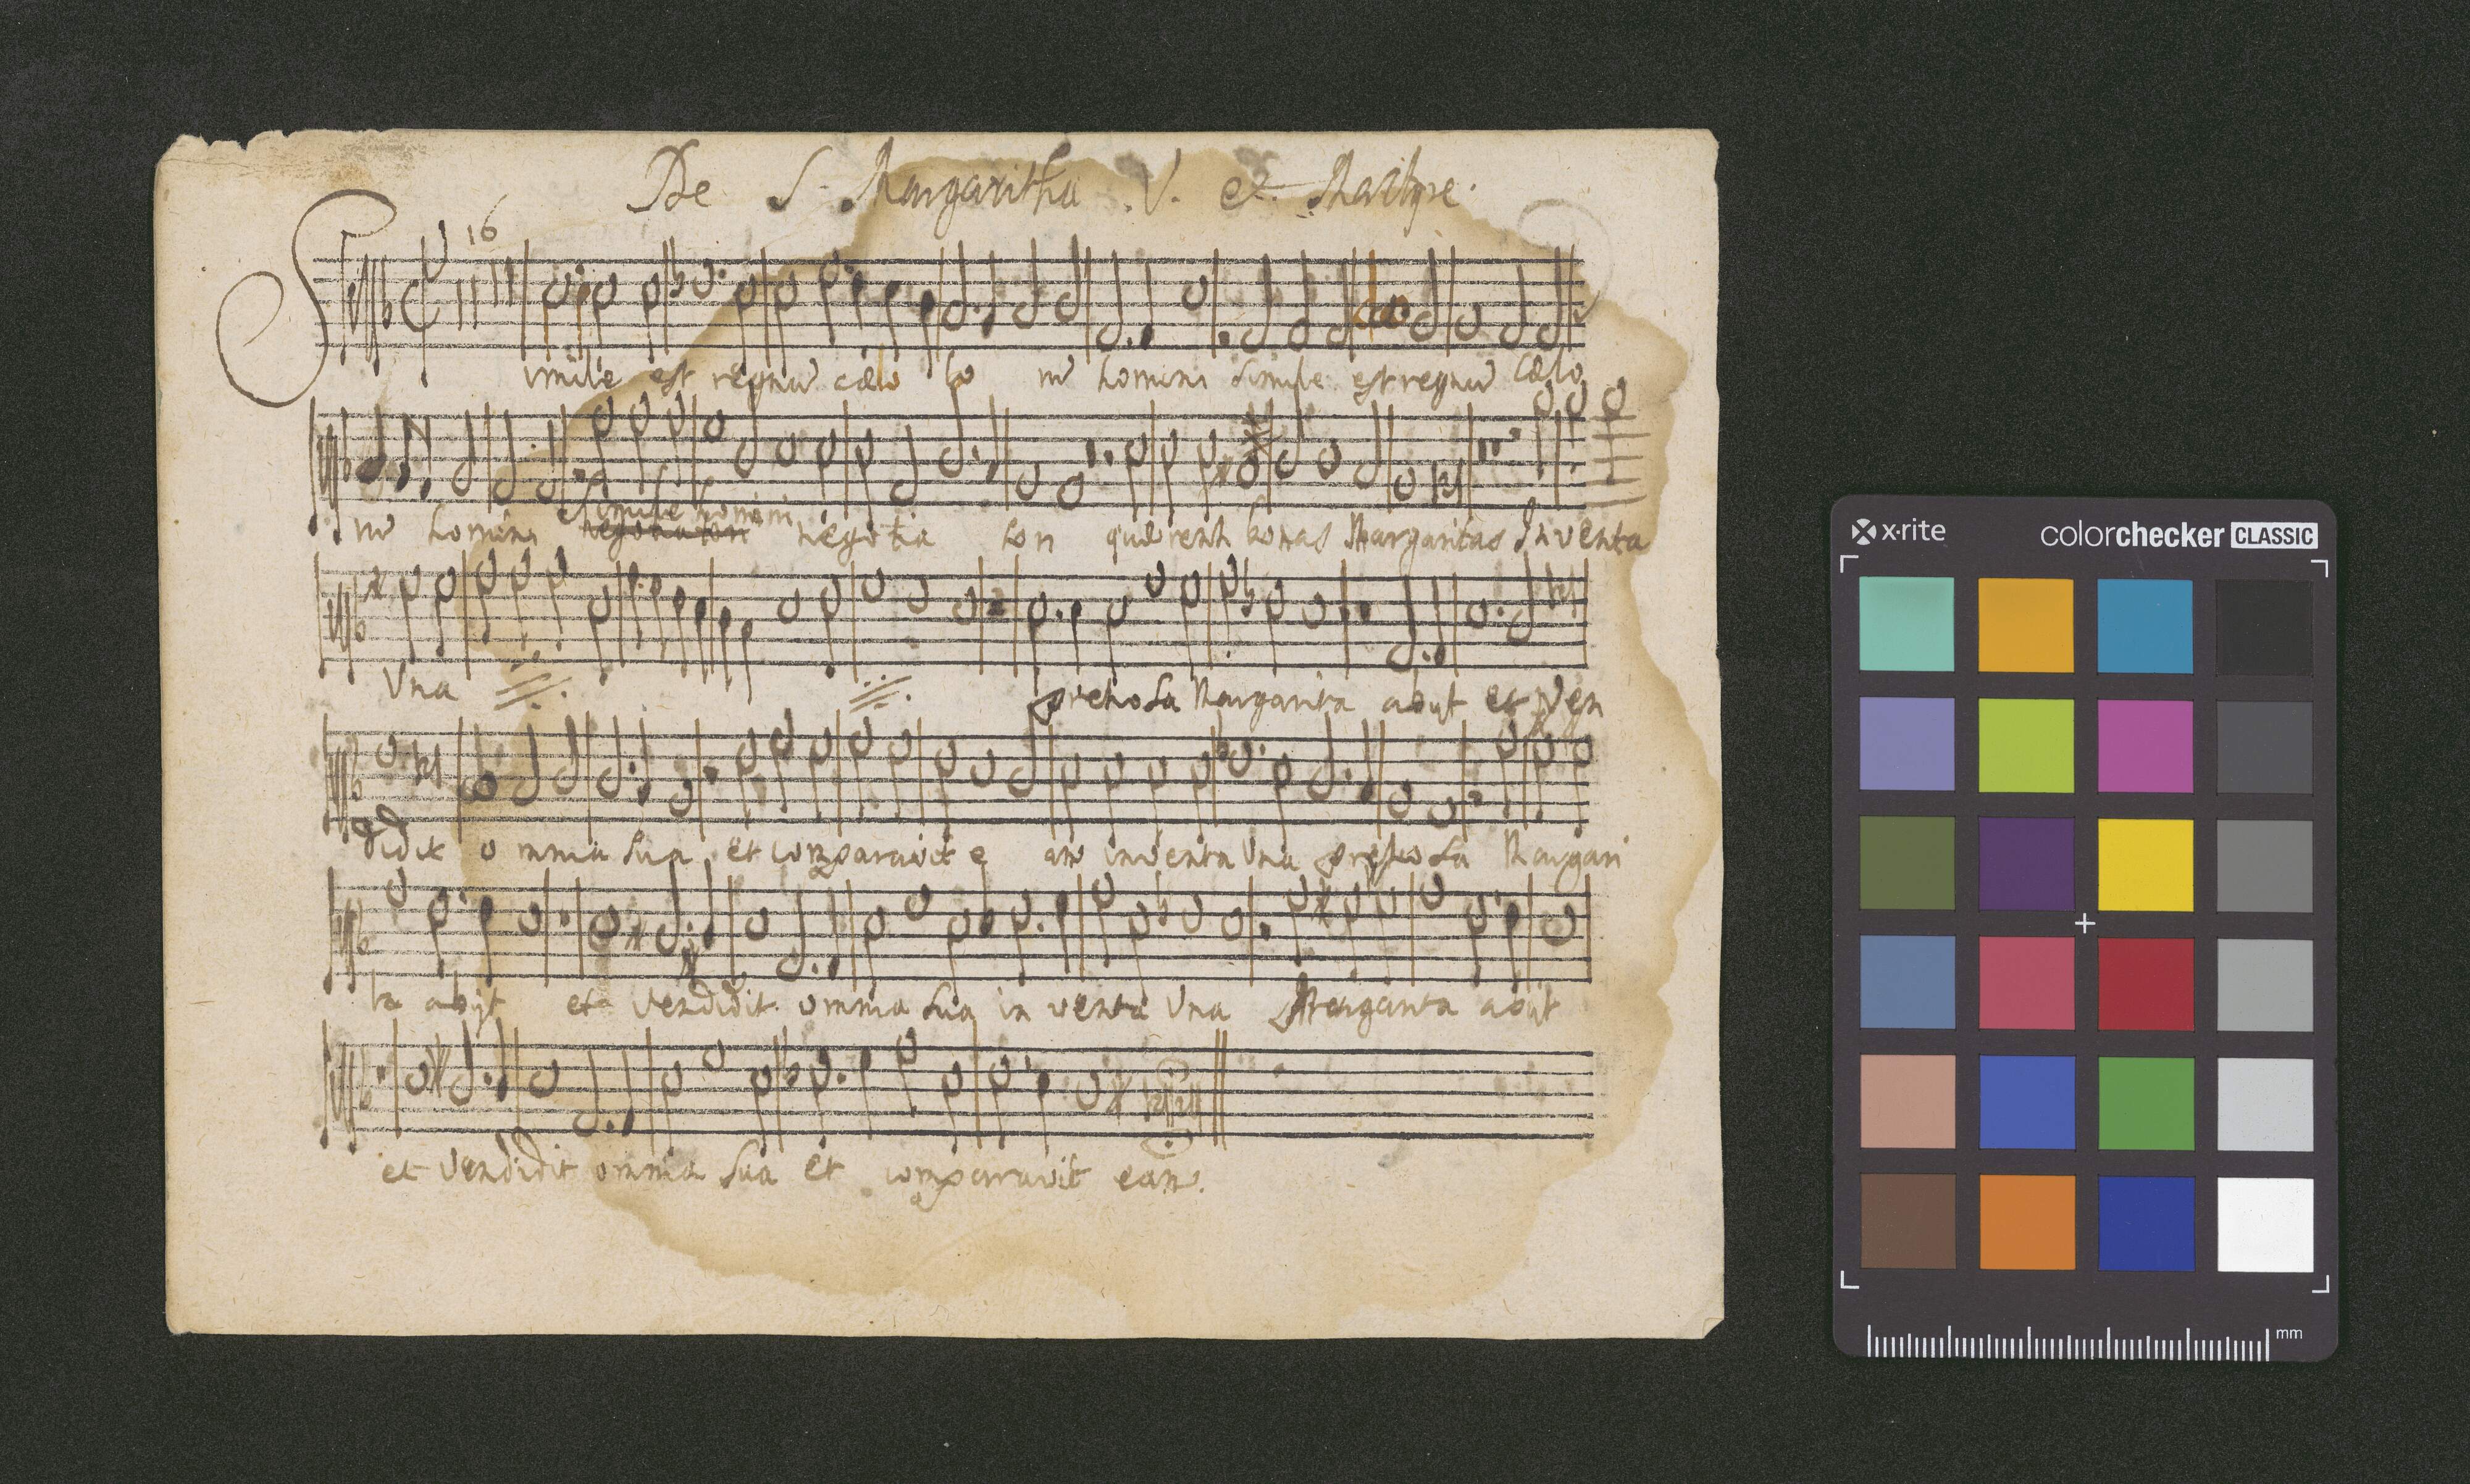 De S. Margaritha V. et Martyre.
16
Simile est regnũ cælo lo rũ homini simile est regnũ cælo
rũ homini Simile homini negotia tori querenti bonas Margaritas Inventa
Vna pretiosa Margarita abijt et Ven
didit omnia sua et comparavit e am inventa Vna pretiosa Margari
ta abijt et vendidit omnia sua in venta Vna Margarita abijt
et Vendidit omnia sua et comparavit eam.
x-rite colorchecker CLASSIC
mm